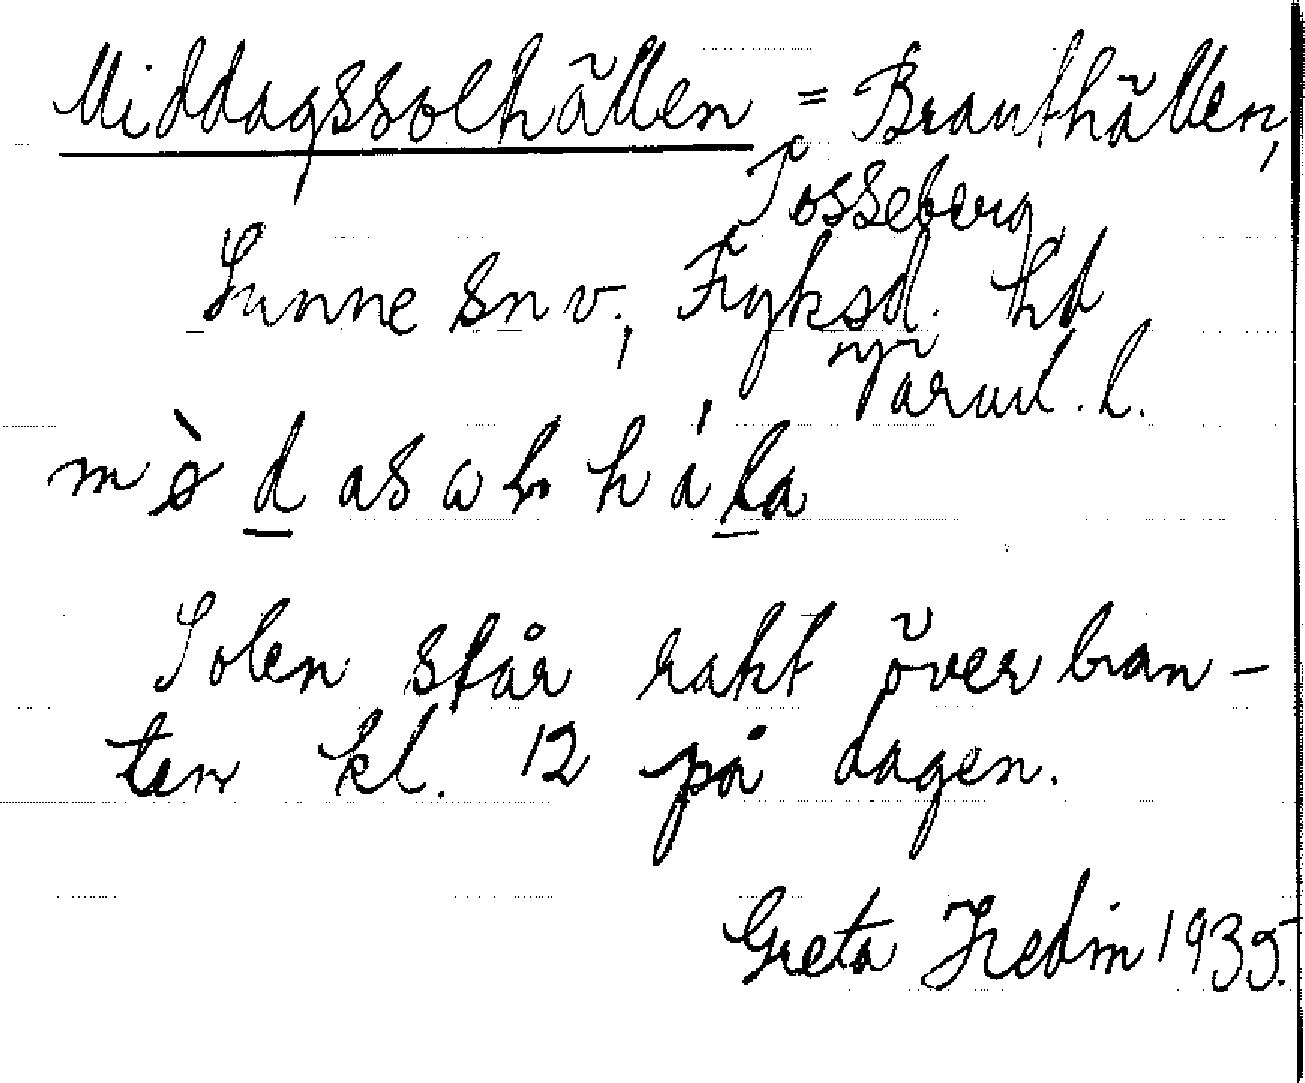 Middagssolhällen = Branthällen,
Tosseberg
Sunne sn v., Fryksd. hd
Värml. l.
Solen står rakt över bran-
ten kl. 12 på dagen.
Greta Hedin 1935.